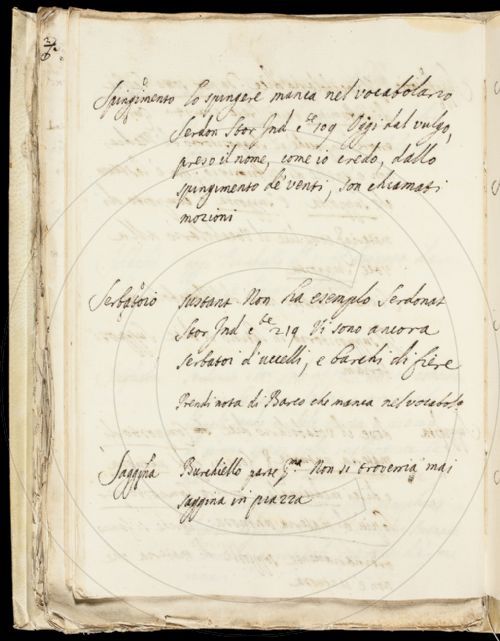 Spingimento Lo spingere manca nel vocabolario
Serdon Stor Ind c.te 109 Oggi dal vulgo,
preso il nome, come io credo, dallo
spingimento de' venti, son chiamati
mozioni
Serbatoio sustant Non ha esempio Serdonat
Stor Ind c.te 219 Vi sono ancora
serbatoi d'uccelli, e barchi di fiere
Prendi nota di Barco che manca nel vocabolo
Saggina Burchiello parte p.ma Non si troverria mai
saggina in piazza